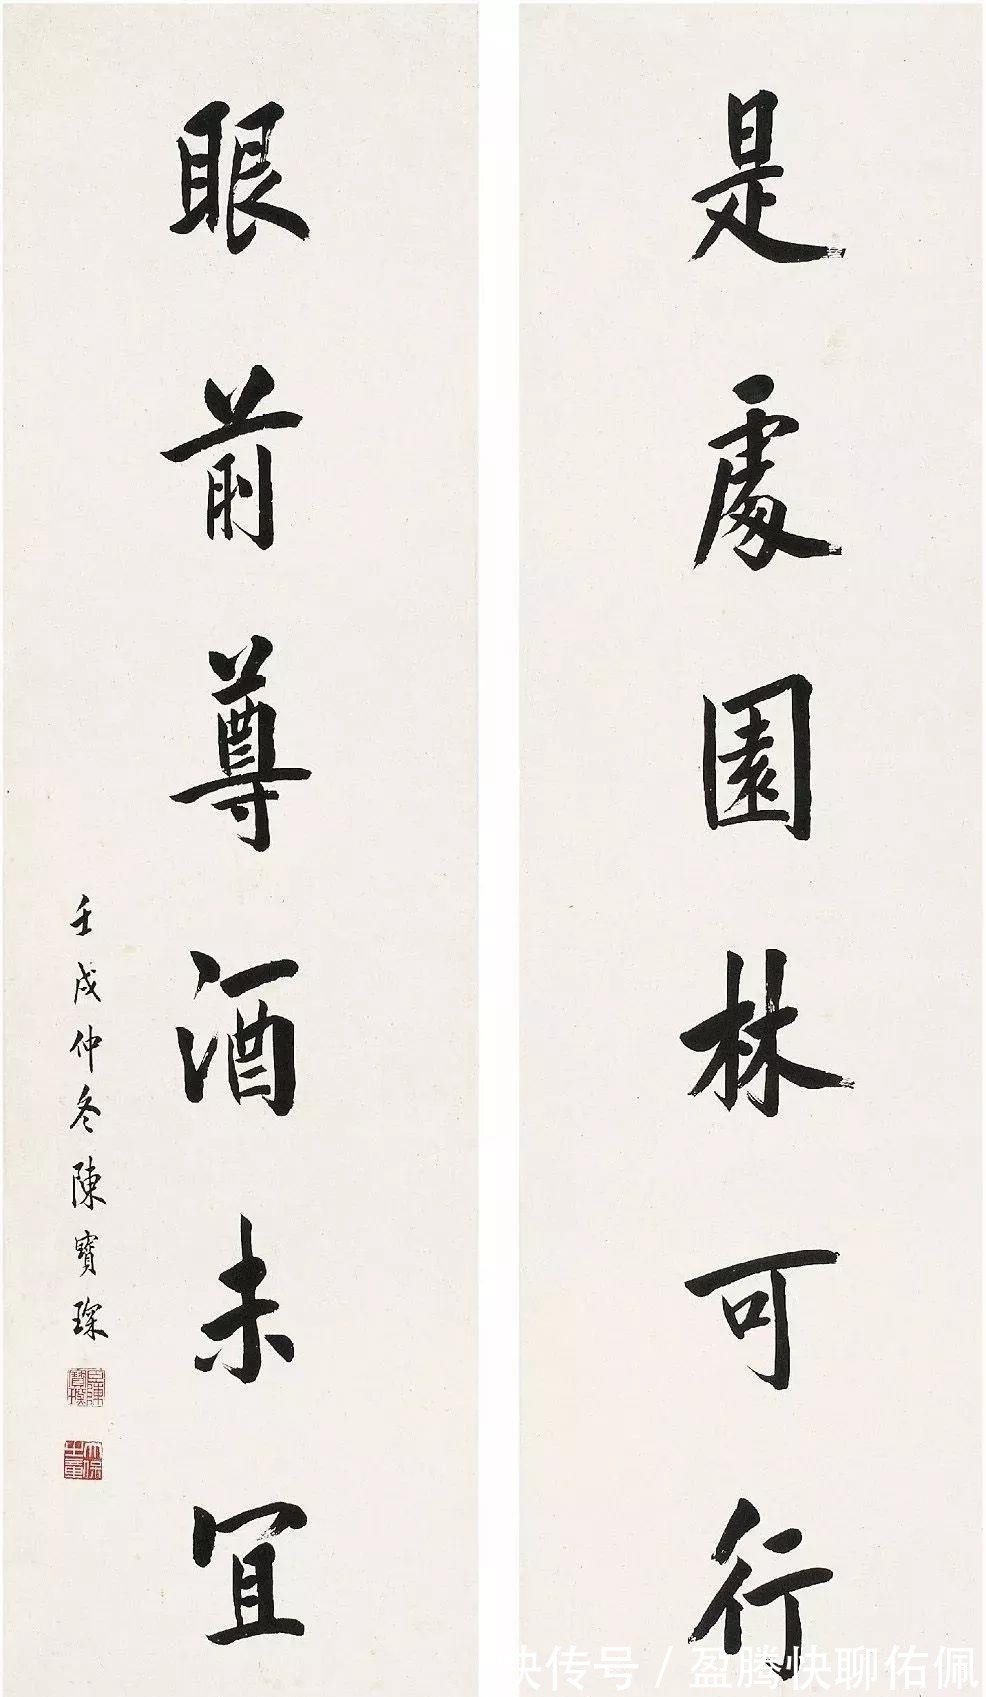 是處園林可行
眼前尊酒未宜
壬戌仲冬陳寶琛
臣陳寶琛
快传号 / 盈腾快聊佑佩